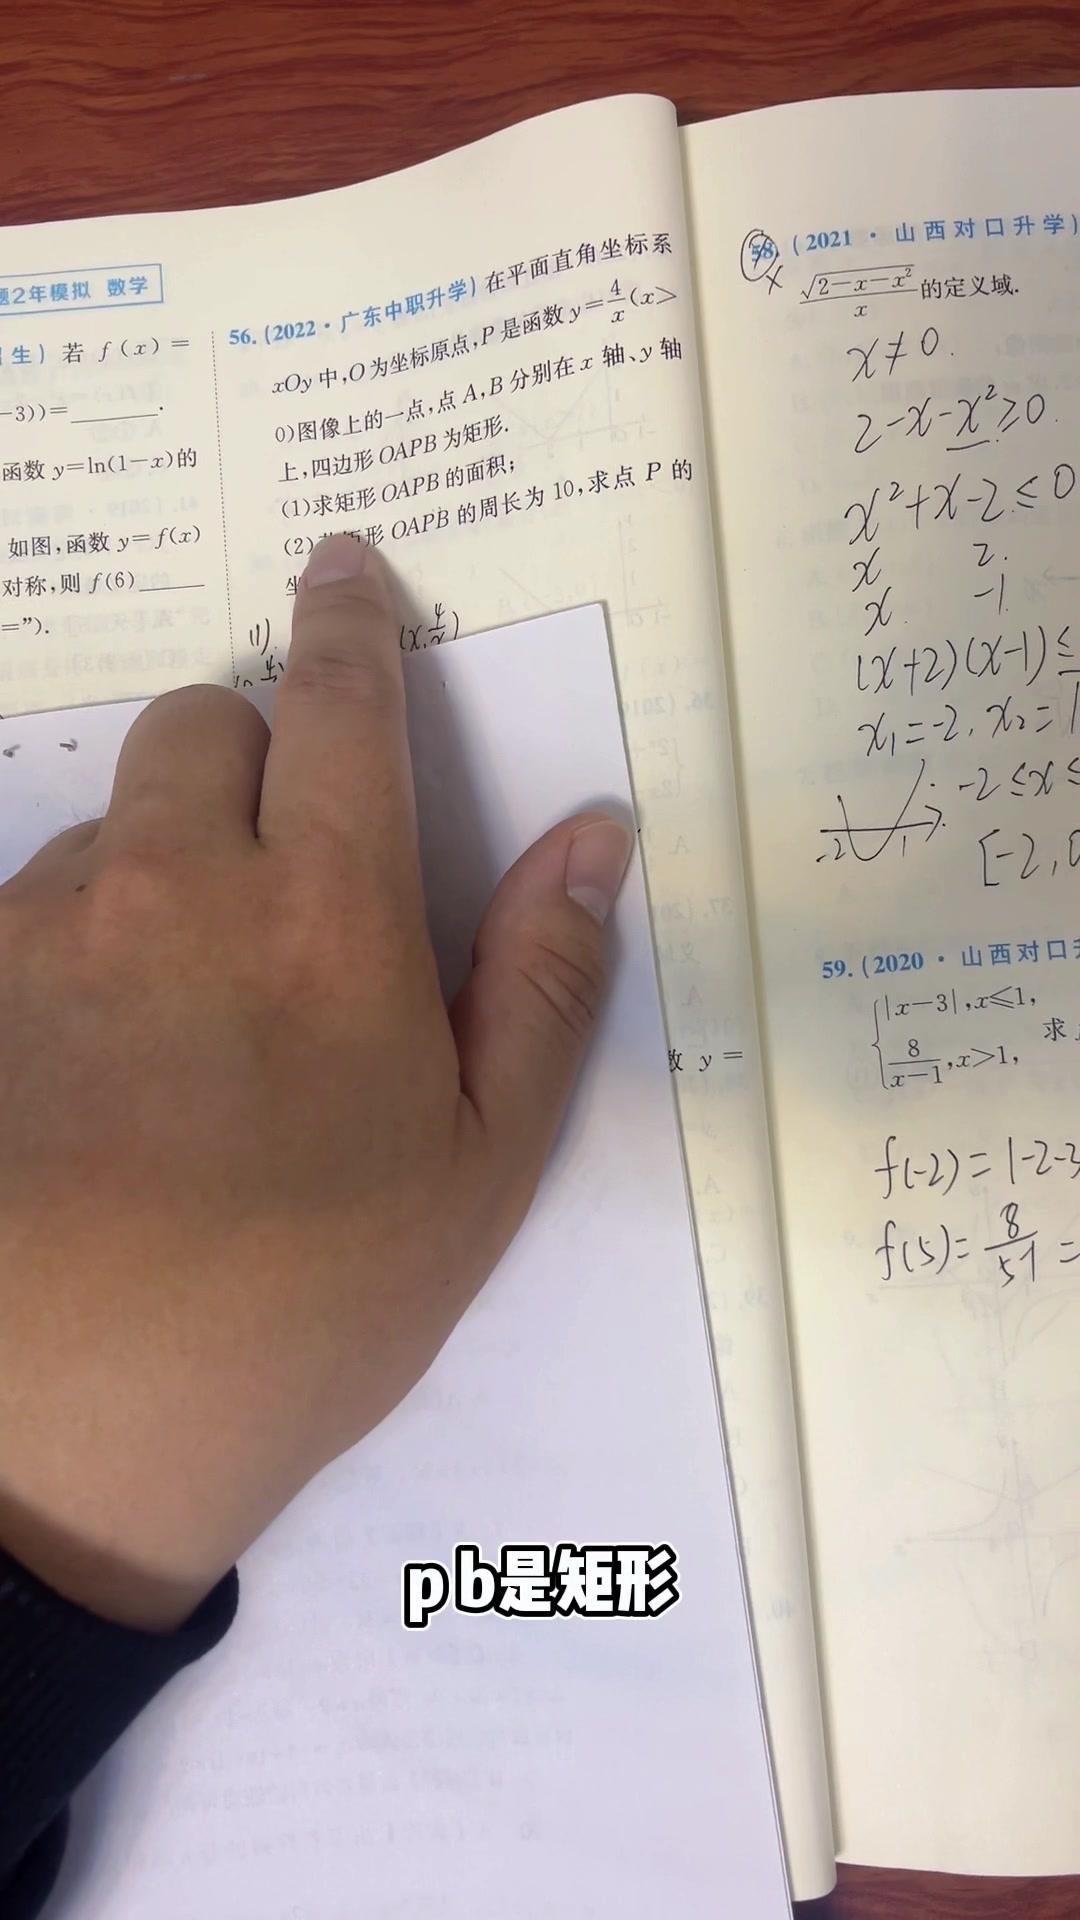 题2年模拟 数学
生）若 f（x）=
-3))=________.
函数 y=ln(1-x)的
如图,函数 y=f(x)
对称,则 f(6)____
=”).
56.(2022·广东中职升学)在平面直角坐标系
xOy 中,O 为坐标原点,P 是函数 y=4/x(x>
0)图像上的一点,点 A,B 分别在 x 轴、y 轴
上,四边形 OAPB 为矩形.
(1)求矩形 OAPB 的面积;
(2)矩形 OAPB 的周长为 10,求点 P 的
坐
(1)
(x,4/x)
数 y=
58.(2021·山西对口升学)
√(2-x-x²)/x 的定义域.
x≠0.
2-x-x²≥0.
x²+x-2≤0
x 2.
x -1
(x+2)(x-1)≤
x₁=-2, x₂=1
-2≤x≤
-2 1
[-2,0
59.(2020·山西对口升
{|x-3|,x≤1,
8/(x-1),x>1,
求
f(-2)=|-2-3
f(5)=8/5-1=
p b是矩形